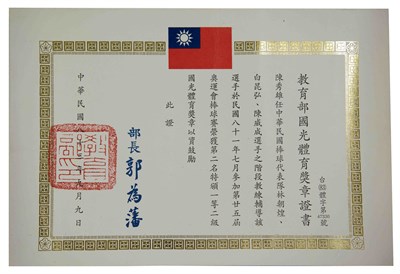 教育部國光體育獎章證書
體字第
號
陳秀雄任中華民國棒球代表隊林朝煌、
白昆弘、陳威成選手之階段教練輔導該
選手於民國八十一年七月參加第廿五屆
奧運會棒球賽榮獲第二名特頒一等二級
國光體育獎章以資鼓勵
此證
部長 郭為藩
中華民國 月九日